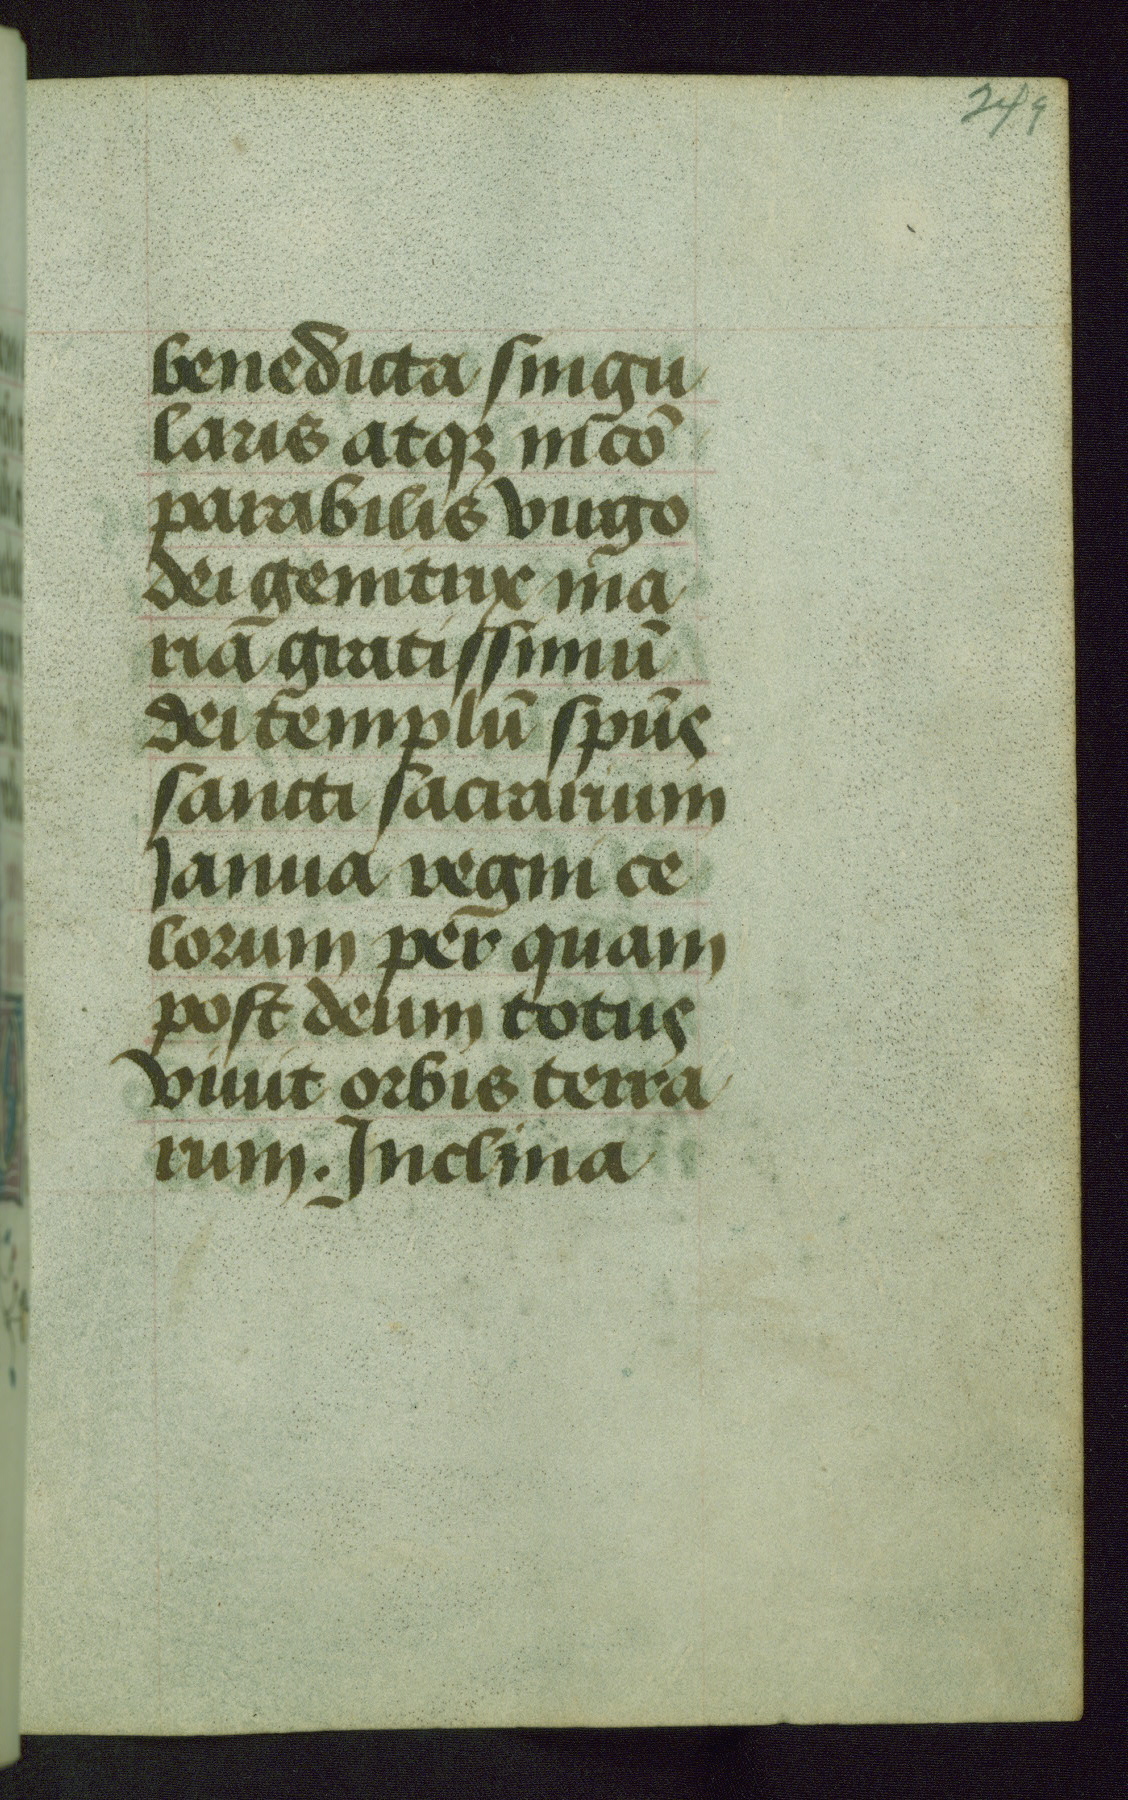 249
benedicta singu
laris atqꝫ incō
parabilis virgo
dei genitrix ma
riā gratissimū
dei templū spūs
sancti sacrarium
Ianua regni ce
lorum per quam
post deum totus
viuit orbis terra
rum. Inclina